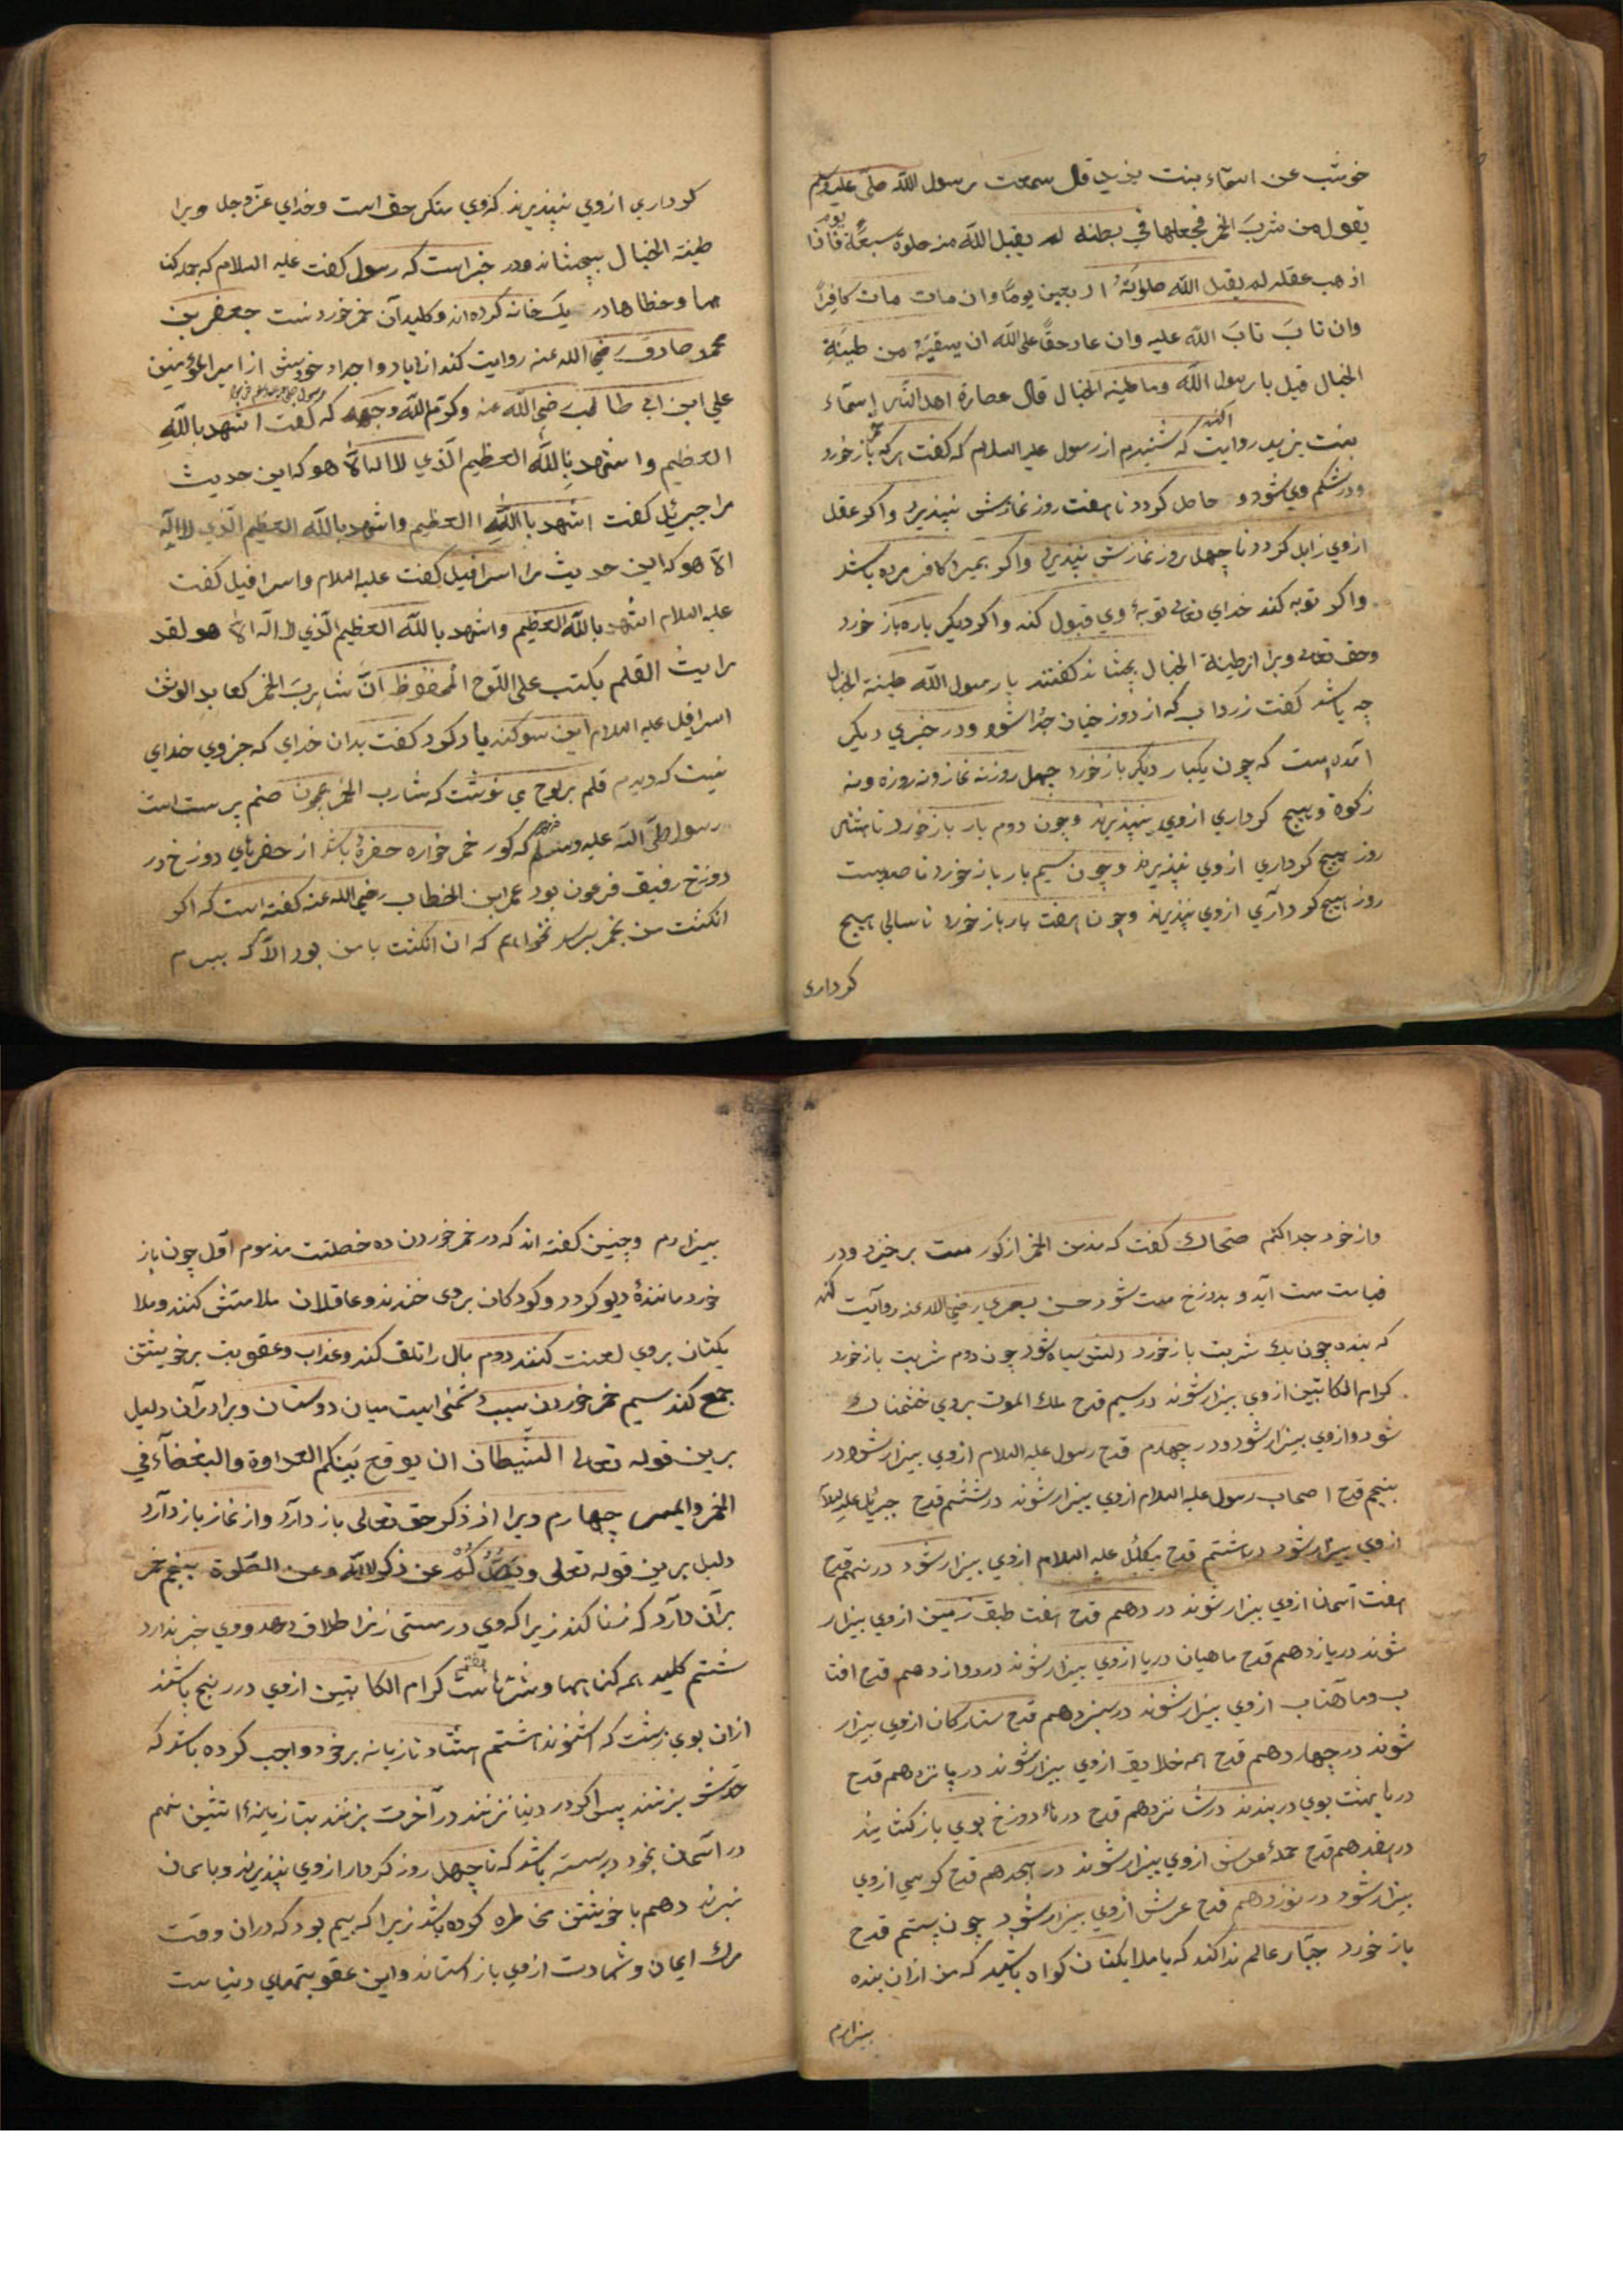 خوشب عن اسمآء بنت یزید قال سمعت رسول الله صلی علیه وسلم
یقول من شرب الخمر فجعلها فی بطنه لم یقبل الله منه صلوة سبعة یوم فاذا
اذهب عقله لم یقبل الله صلوته اربعین یوما وان مات مات کافرا
وان تاب تاب الله علیه وان عاد حقا علی الله ان یسقیه من طینة
الخبال قیل یا رسول الله وما طینه الخبال قال عصارة اهل النار اسمآء
بنت یزید روایت کند که شنیدم از رسول علیه السلام که کفت هرکه خمر باز خورد
ودر شکم وی شود و حاصل کردد تا هفت روز نمازش نپذیرد واکر عقل
از وی زایل کردد تا چهل روز نمازش نپذیرد واکر بمیرد کافر مرده باشد
واکر توبه کند خدای تعالی توبهٔ وی قبول کند واکر دیکر باره باز خورد
وحق تعالی ویرا از طینة الخبال بچشاند کفتند یا رسول الله طینة الخبال
چه باشد کفت زرداب که از دوزخیان جدا شود ودر خبری دیکر
آمده است که چون یکبار دیکر باز خورد چهل روز نه نماز ونه روزه ونه
زکوة وهیچ کرداری از وی نپذیرند وچون دوم بار باز خورد تا هشتاد
روز هیچ کرداری از وی نپذیرند وچون سیم بار باز خورد تا صدوبیست
روز هیچ کرداری از وی نپذیرند وچون هفت بار باز خورد تا سالی هیچ
کرداری
کرداری از وی نپذیرند که وی منکر حق است وخدای عز وجل ویرا
طینة الخبال بچشاند ودر خبر است که رسول کفت علیه السلام که جمله کنا
هها وخطاها در یک خانه کرده اند وکلید آن خمر خوردنست جعفر بن
محمد صادق رضی الله عنه روایت کند از ابا واجداد خویش از امیر المؤمنین
علی ابن ابی طالب رضی الله عنه وکرم الله وجهه که کفت اشهد بالله
العظیم واشهد بالله العظیم الذی لا اله الا هو که این حدیث
مرا جبرئیل کفت اشهد بالله العظیم واشهد بالله العظیم الذی لا اله
الا هو که این حدیث مرا اسرافیل کفت علیه السلام واسرافیل کفت
علیه السلام اشهد بالله العظیم واشهد بالله العظیم الذی لا اله الا هو لقد
رایت القلم یکتب علی اللوح المحفوظ ان شارب الخمر کعابد الوثن
اسرافیل علیه السلام این سوکند یاد کرد کفت بدان خدای که جز وی خدای
نیست که دیدم قلم بر لوح می نوشت که شارب الخمر همچون صنم پرست است
رسول صلی الله علیه وسلم فرمود که کور خمر خواره حفرهٔ باشد از حفرهای دوزخ در
دوزخ رفیق فرعون بود عمر ابن الخطاب رضی الله عنه کفته است که اکر
انکشت من بخمر برسد نخواهم که ان انکشت با من بود الا که ببرم
واز خود جدا کنم ضحاک کفت که مدمن الخمر از کور مست برخیزد ودر
قیامت مست آید و بدوزخ مست شود حسن بصری رضی الله عنه روایت کند
که بنده چون یک شربت باز خورد دلش سیاه شود چون دوم شربت باز خورد
کرام الکاتبین از وی بیزار شوند در سیم قدح ملک الموت بر وی خشمناک
شود واز وی بیزار شود ودر چهارم قدح رسول علیه السلام از وی بیزار شود در
پنجم قدح اصحاب رسول علیه السلام از وی بیزار شوند در ششم قدح جبرئیل علیه السلام
از وی بیزار شود در هشتم قدح میکائیل علیه السلام از وی بیزار شود در نهم قدح
هفت آسمان از وی بیزار شوند در دهم قدح هفت طبق زمین از وی بیزار
شوند در یازدهم قدح ماهیان دریا از وی بیزار شوند در دوازدهم قدح افتا
ب وماهتاب از وی بیزار شوند در سیزدهم قدح ستارکان از وی بیزار
شوند در چهاردهم قدح همه خلایق از وی بیزار شوند در پانزدهم قدح
درهای بهشت بوی در بندند در شانزدهم قدح درهای دوزخ بوی باز کشایند
در هفدهم قدح حملهٔ عرش از وی بیزار شوند در هجدهم قدح کرسی از وی
بیزار شود در نوزدهم قدح عرش از وی بیزار شود چون بیستم قدح
باز خورد جبار عالم ندا کند که یا ملایکتان کواه باشید که من ازان بنده
بیزارم
بیزارم وچنین کفته اند که در خمر خوردن ده خصلتست مذموم اول چون باز
خورد مانندهٔ دیو کردد وکودکان بر وی خندند وعاقلان ملامتش کنند وملا
یکتان بر وی لعنت کنند دوم مال را تلف کند وعذاب وعقوبت بر خویشتن
جمع کند سیم خمر خوردن سبب دشمنی است میان دوستان وبرادران دلیل
برین قوله تعالی الشیطان ان یوقع بینکم العداوة والبغضآء فی
الخمر والمیسر چهارم ویرا از ذکر حق تعالی باز دارد واز نماز باز دارد
دلیل برین قوله تعالی ویصدکم عن ذکر الله وعن الصلوة پنجم خمر
بران دارد که زنا کند زیرا که وی در مستی زنرا طلاق دهد ووی خبر ندارد
ششم کلید همه کناهها وشرهاست هفتم کرام الکاتبین از وی در رنج باشند
ازان بوی زشت که اشنوند هشتم هشتاد تازیانه بر خود واجب کرده باشد که
حدش بزنند پس اکر در دنیا نزنند در آخرت بزنند بتازیانهٔ اتشین نهم
در آسمان بخود در بسته باشد که تا چهل روز کردار از وی نپذیرند وباسمان
نبرند دهم با خویشتن مخاطره کرده باشد زیرا که بیم بود که دران وقت
مرک ایمان وشهادت از وی باز استانند واین عقوبتهای دنیاست